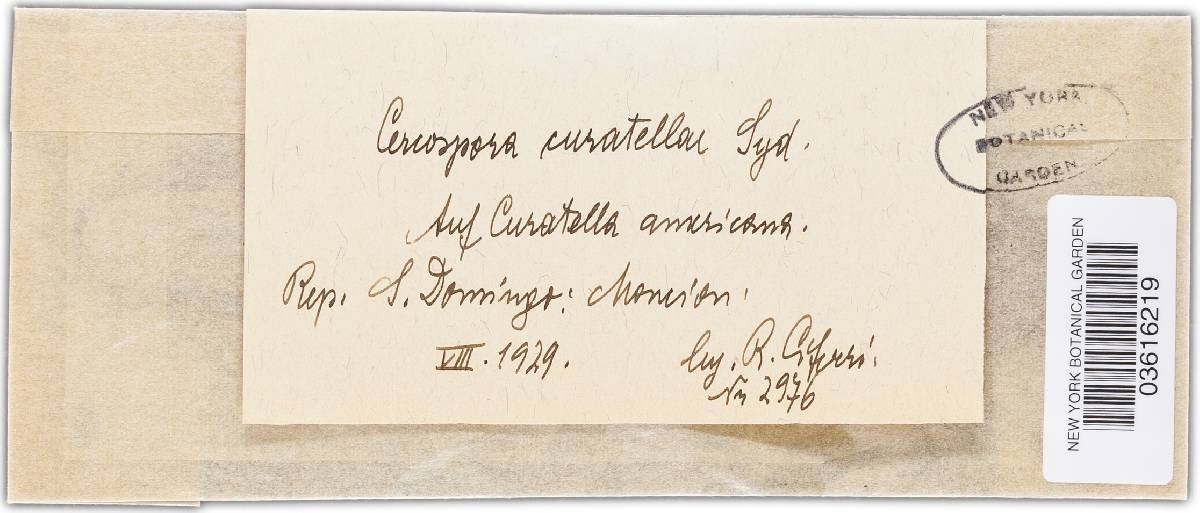 Cercospora curatellae Syd.
Auf Curatella americana.
Rep. S. Domingo: Moncion.
VIII. 1929.
leg. R. Ciferri.
Nr 2976
NEW YORK
BOTANICAL
GARDEN
NEW YORK BOTANICAL GARDEN
03616219